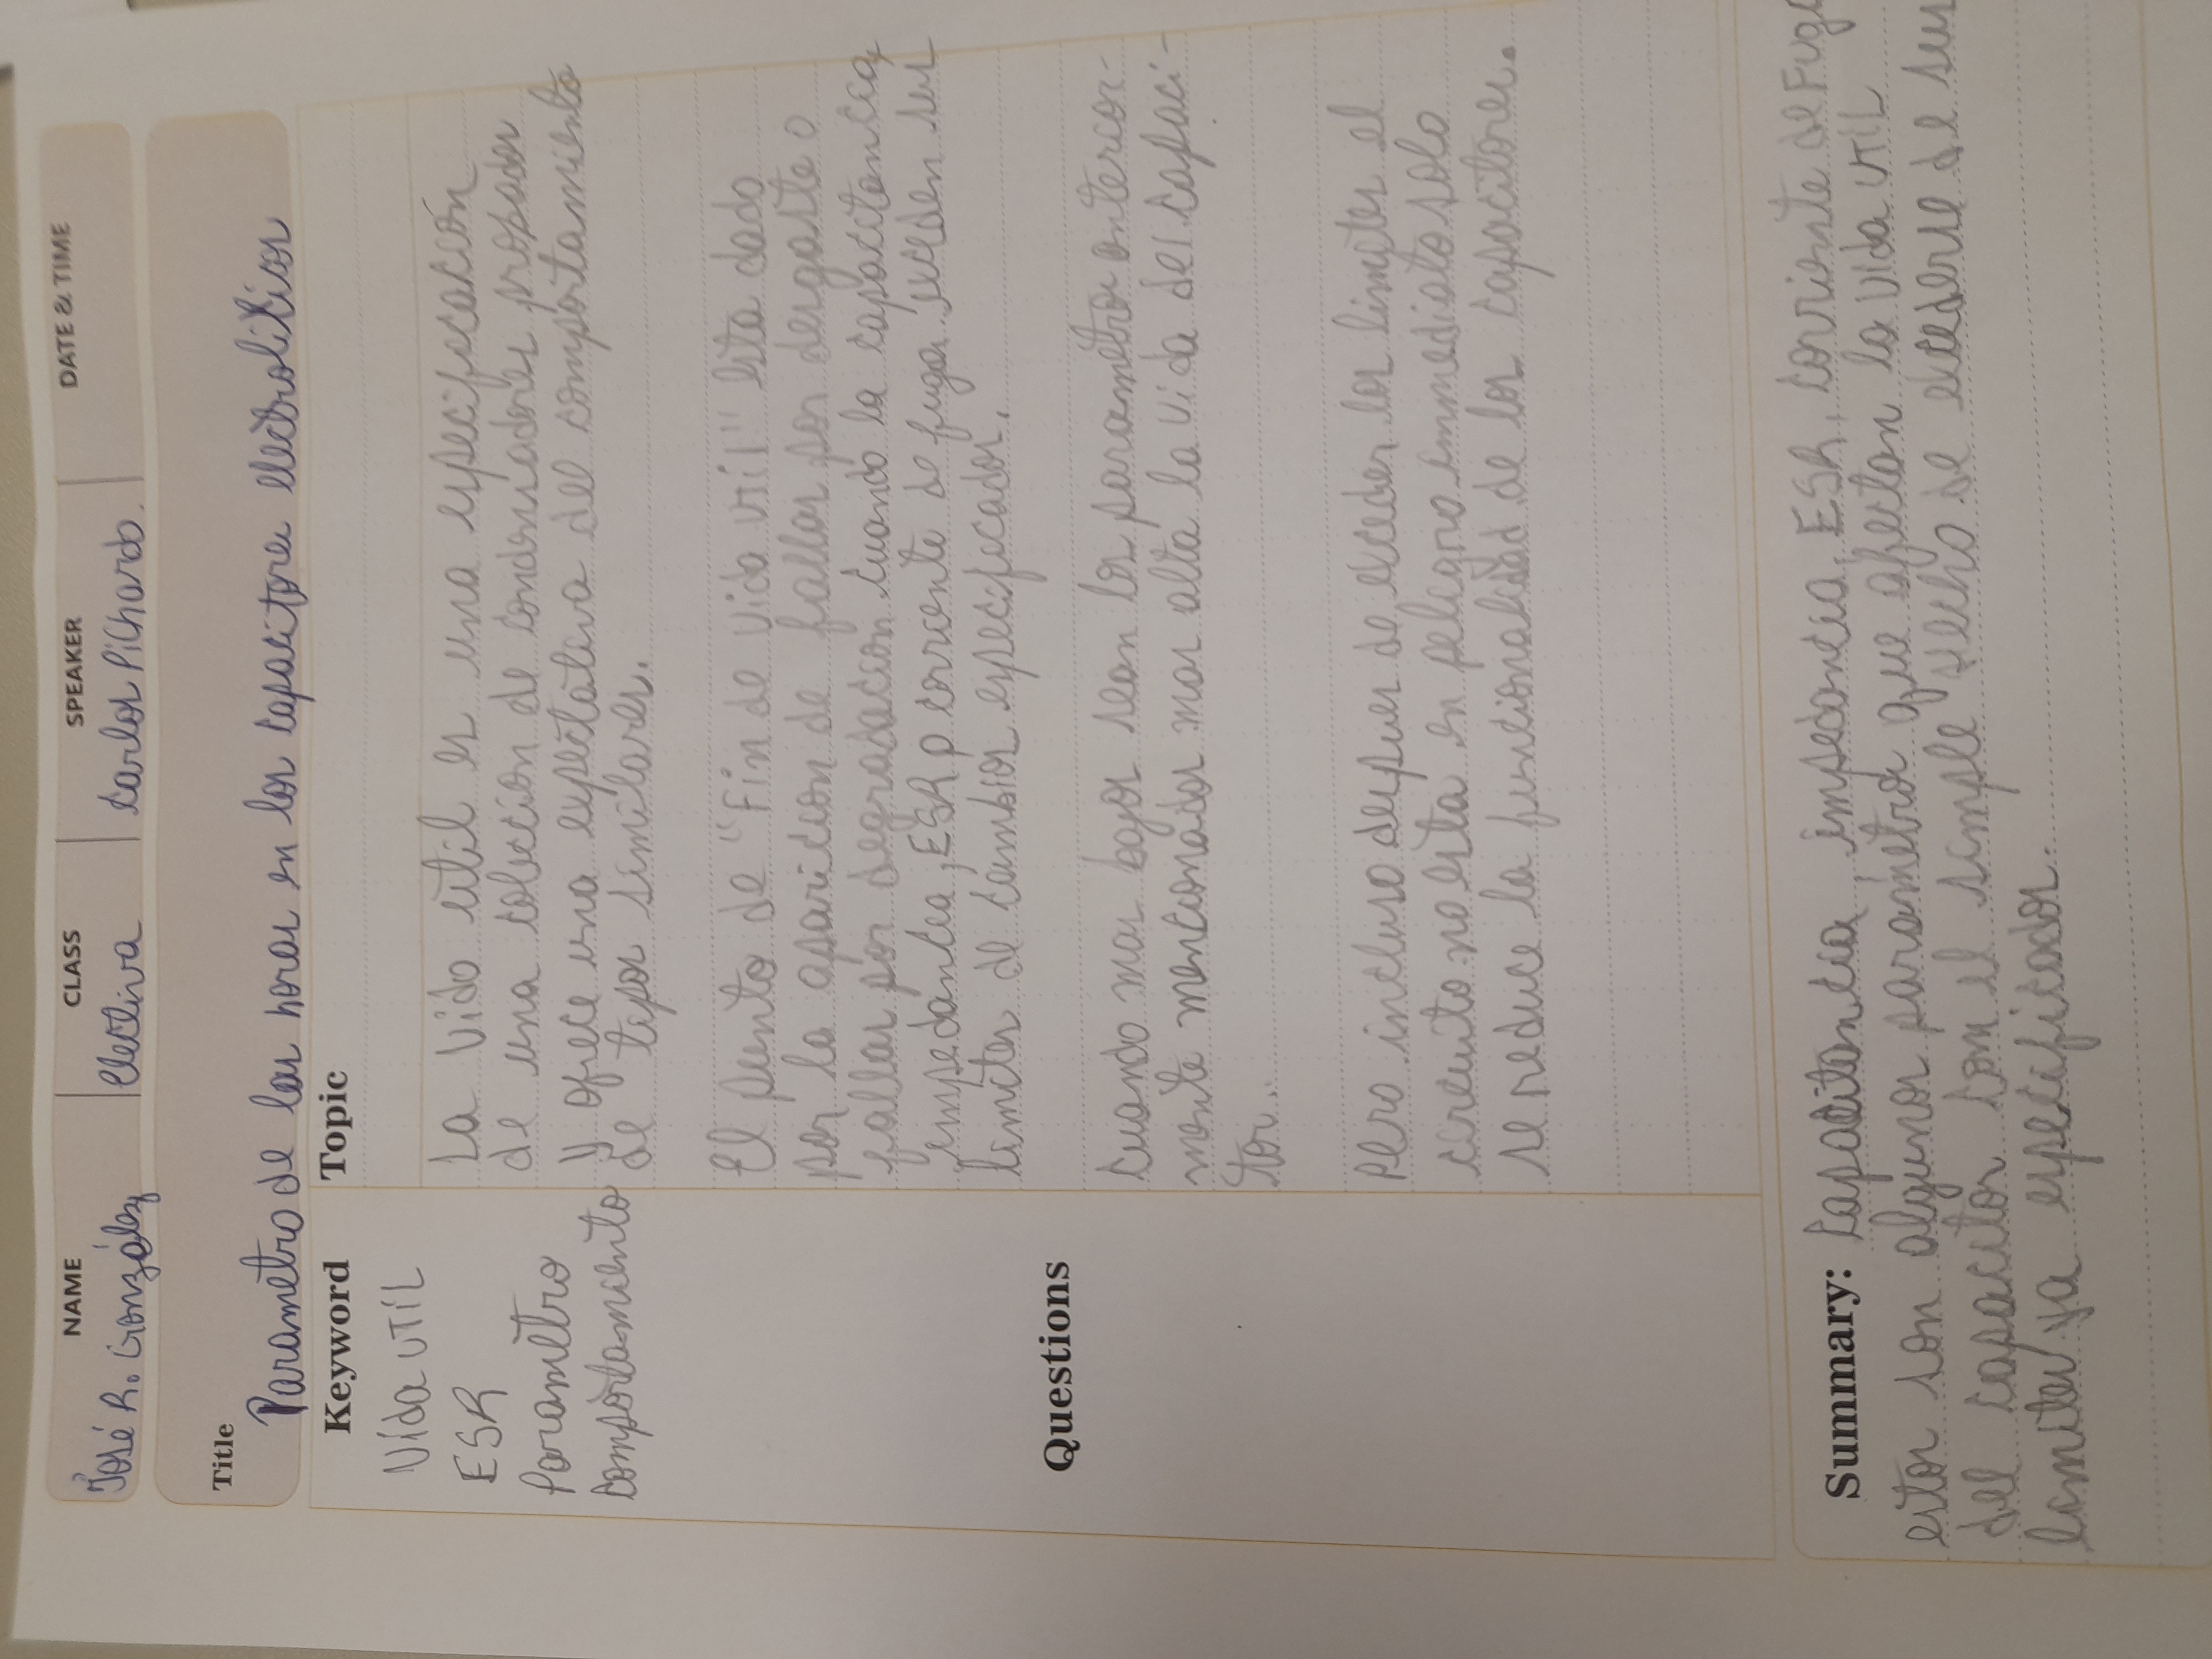 NAME CLASS SPEAKER DATE & TIME
José R. González Electiva Carlos Pichardo.
Title
Parametro de las horas en los capacitores electroliticos
Keyword
Vida UTIL
ESR
Parametro
Comportamiento
Questions
Topic
La Vida útil es una especificacación
de una colección de condensadores probados
y ofrece una expectativa del comportamiento
de tipos similares.
El punto de "Fin de Vida UTil" esta dado
por la aparicion de fallas por desgaste o
fallas por degradacion cuando la capacitancia,
impedancia, ESR o corriente de fuga exceden sus
limites de cambios especificados.
Cuando mas bajos sean los parametros anterior-
mente mencionados mas alta la vida del capaci-
tor..
Pero incluso despues de exceder los limites el
circuito no esta en peligro immediato solo
se reduce la funcionalidad de los capacitores.
Summary: Capacitancia, impedancia, ESR, Corriente de Fuga
estos son algunos parametros que afectan la Vida UTIL
del capacitor con el simple Hecho de excederse de sus
limites ya especificados.